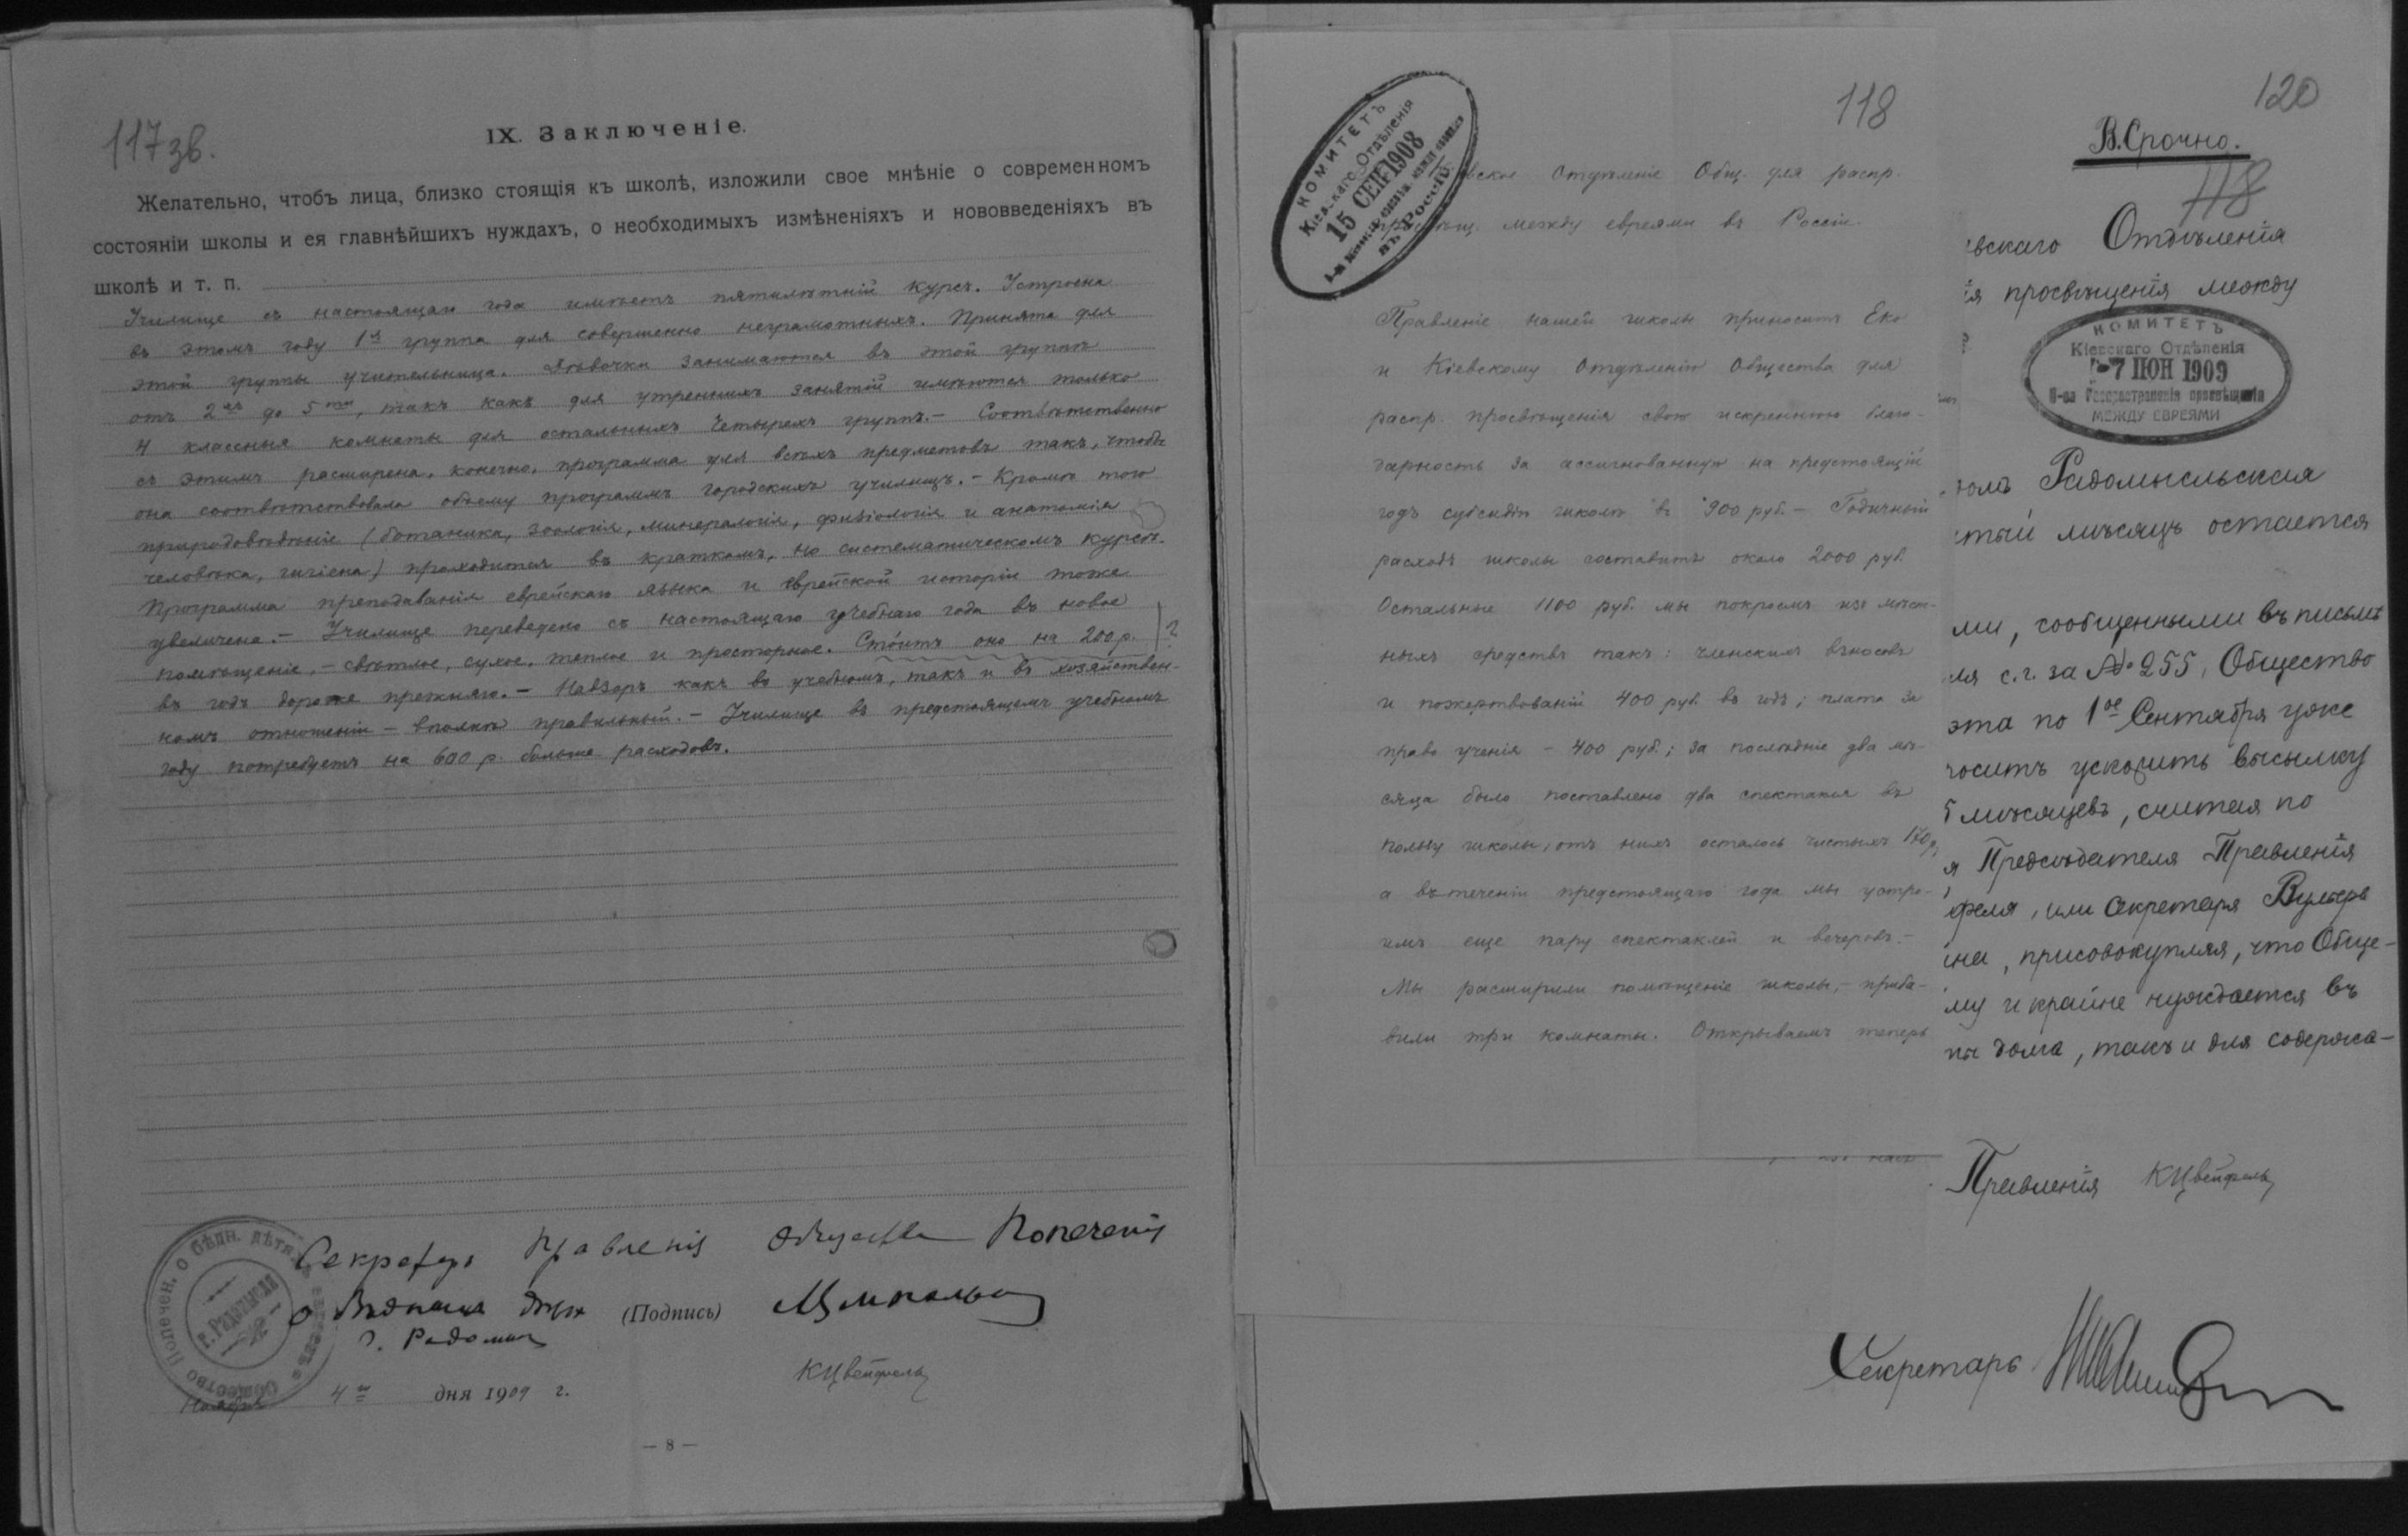 117 зв.
IX. Заключеніе.
Желательно, чтобъ лица, близко стоящія къ школѣ, изложили свое мнѣніе о современномъ
состояніи школы и ея главнѣйшихъ нуждахъ, о необходимыхъ измѣненіяхъ и нововведеніяхъ въ
школѣ и т. п.
Училище съ настоящаго года имѣетъ пятилѣтній курсъ. Устроена
въ этомъ году 1я группа для совершенно неграмотныхъ. Принята для
этой группы учительница. Дѣвочки занимаются въ этой группѣ
отъ 2хъ до 5ти, такъ какъ для утреннихъ занятій имѣются только
4 классныя комнаты для остальныхъ четырехъ группъ. — Соотвѣтственно
съ этимъ расширена, конечно, программа для всѣхъ предметовъ такъ, чтобы
она соотвѣтствовала объему программъ городскихъ училищъ. — Кромѣ того
природовѣдѣніе (ботаника, зоологія, минералогія, физіологія и анатомія
человѣка, гигіена) проходится въ краткомъ, но систематическомъ курсѣ.
Программа преподаванія еврейскаго языка и еврейской исторіи тоже
увеличена. — Училище переведено съ настоящаго учебнаго года въ новое
помѣщеніе, — свѣтлое, сухое, теплое и просторное. Сто́итъ оно на 200 р. ?
въ годъ дороже прежняго. — Надзоръ какъ въ учебномъ, такъ и въ хозяйствен-
номъ отношеніи — вполнѣ правильный. — Училище въ предстоящемъ учебномъ
году потребуетъ на 600 р. больше расходовъ.
Секретарь Правленія Общества Попеченія
о бѣдныхъ дѣтяхъ (Подпись)
г. Радомысл
КЦвейфель
Общество Попечен. о бѣдн. дѣтяхъ евреевъ
г. Радомысля
Ноября 4го дня 1909 г.
— 8 —
118
КОМИТЕТЪ
Кіевскаго Отдѣленія
15 СЕН 1908
въ Россіи
вское Отдѣленіе Общ. для распр.
просвѣщ. между евреями въ Россіи.
Правленіе нашей школы приноситъ Еко
и Кіевскому Отдѣленію Общества для
распр. просвѣщенія свою искреннюю благо-
дарность за ассигнованную на предстоящій
годъ субсидію школѣ въ 900 руб. — Годичный
расходъ школы составитъ около 2000 руб.
Остальные 1100 руб. мы покроемъ изъ мѣст-
ныхъ средствъ такъ: членскихъ взносовъ
и пожертвованій 400 руб. въ годъ; плата за
право ученія — 400 руб.; за послѣдніе два мѣ-
сяца было поставлено два спектакля въ
пользу школы, отъ нихъ осталось чистыхъ 170 р.
а въ теченіи предстоящаго года мы устро-
имъ еще пару спектаклей и вечеровъ. —
Мы расширили помѣщеніе школы, — приба-
вили три комнаты. Открываемъ теперь
120
В. Срочно.
118
евскаго Отдѣленія
ія просвѣщенія между
КОМИТЕТЪ
Кіевскаго Отдѣленія
-7 ІЮН 1909
О-ва Распространенія просвѣщенія
МЕЖДУ ЕВРЕЯМИ
Радомысльская
тый мѣсяцъ остается
ми, сообщенными въ письмѣ
ля с.г. за № 255, Общество
эта по 1ое Сентября уже
роситъ ускорить высылку
5 мѣсяцевъ, считая по
я Предсѣдателя Правленія
феля, или Секретаря
ина, присовокупляя, что Обще-
му и крайне нуждается въ
ты дома, такъ и для содержа-
Правленія КЦвейфель
Секретарь